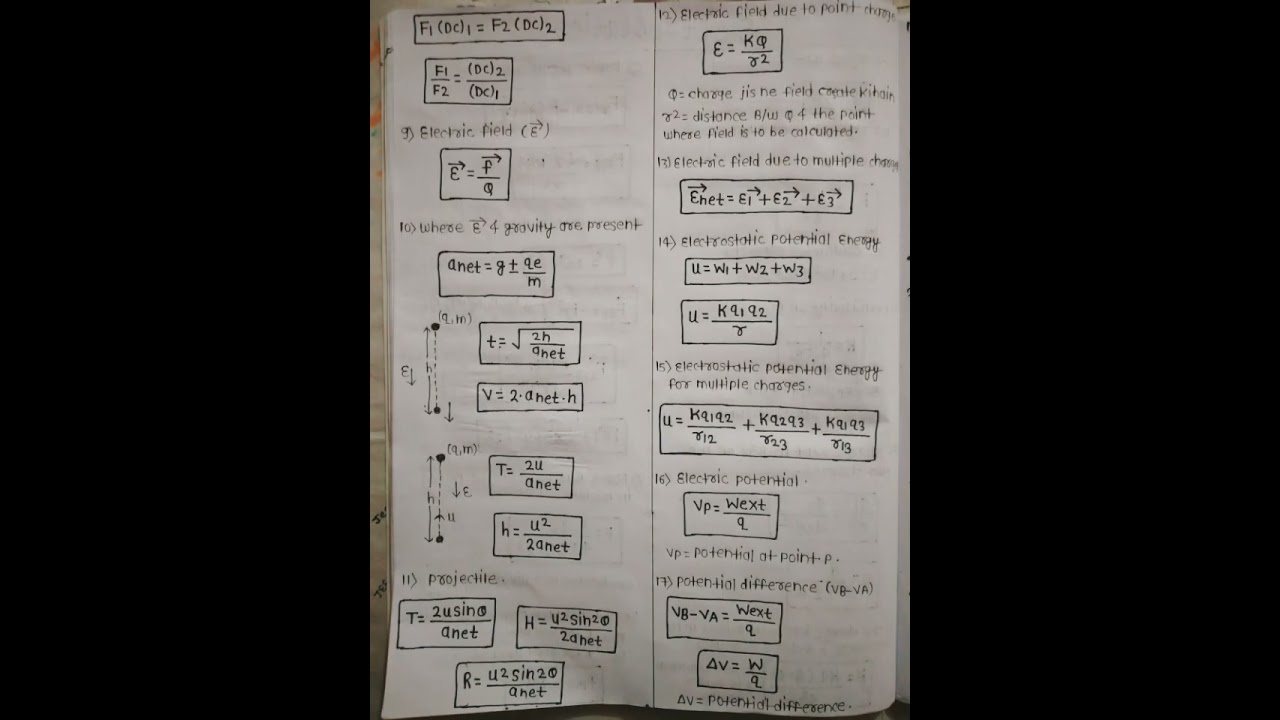 F1 (DC)1 = F2 (DC)2
F1/F2 = (DC)2/(DC)1
9) Electric field (E→)
E→ = F→/Q
10) where E→ & gravity are present
anet = g ± qe/m
(q,m)
t = √2h/anet
h
E↓
V = 2·anet·h
(q,m)
T = 2u/anet
↓E
h
u
h = u2/2anet
11) Projectile.
T = 2usinθ/anet
H = u2sin2θ/2anet
R = u2sin2θ/anet
12) Electric field due to point charge
E = KQ/r2
Q = charge jis ne field create ki hain
r2 = distance B/w Q & the point
where field is to be calculated.
13) Electric field due to multiple charge
E→net = E1→ + E2→ + E3→
14) Electrostatic potential Energy
U = W1 + W2 + W3
U = Kq1q2/r
15) Electrostatic potential Energy
for multiple charges.
U = Kq1q2/r12 + Kq2q3/r23 + Kq1q3/r13
16) Electric potential.
Vp = Wext/q
Vp = Potential at point P.
17) Potential difference (VB-VA)
VB-VA = Wext/q
ΔV = W/q
ΔV = Potential difference.